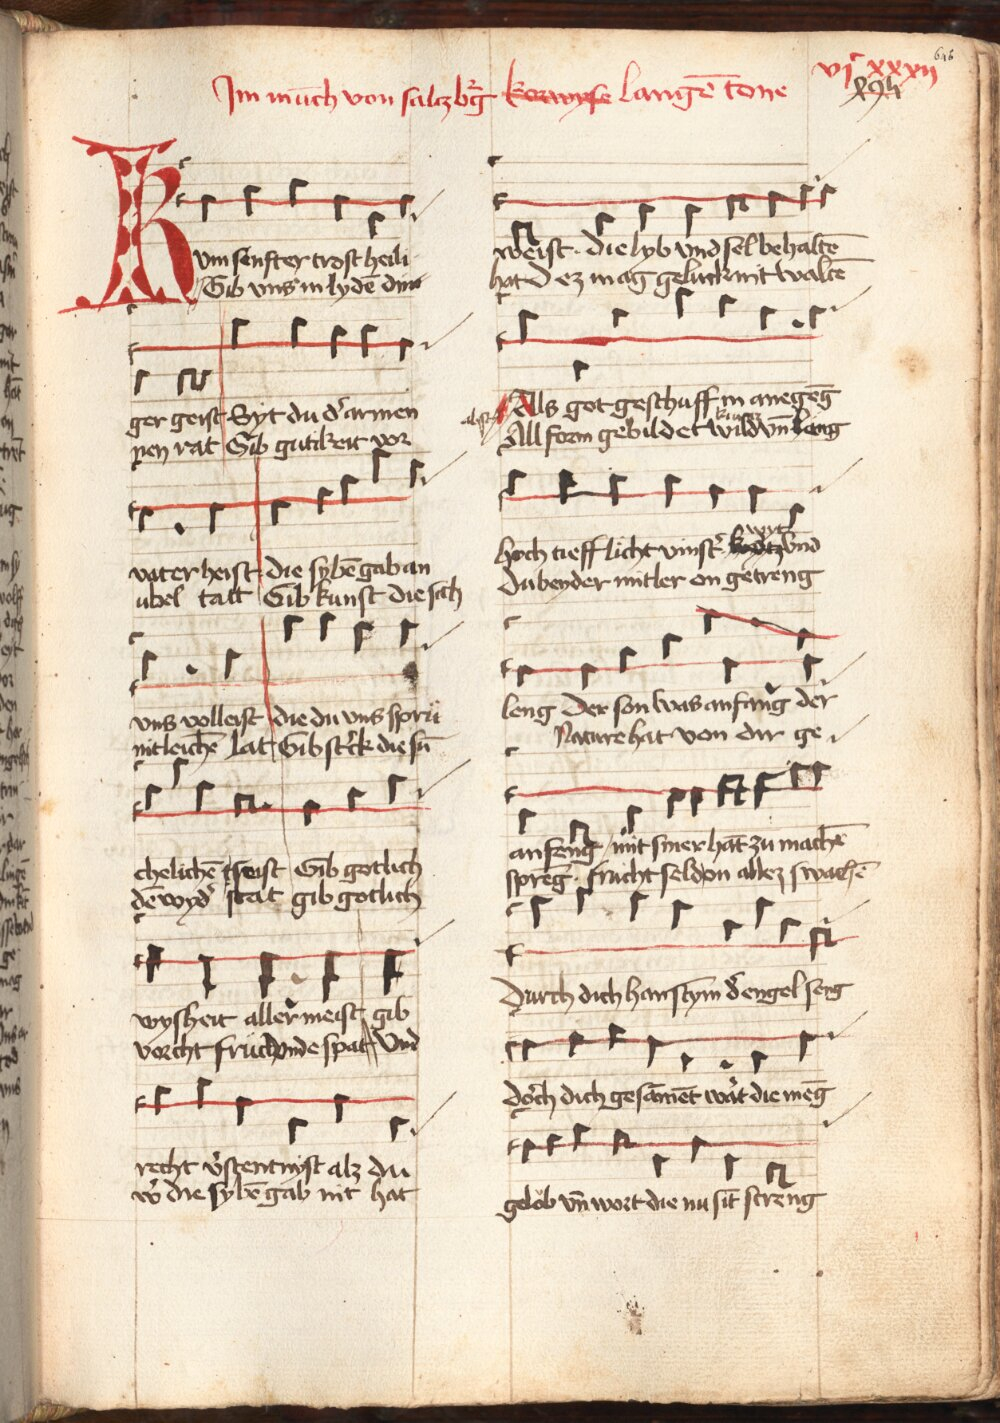 646
vjc xxxij
Im müch von salczbg̃ korwyse langē tone
Kum senfter trost heili
Gib vns in lydē dine
ger geist Syt du d' armen
nen rat Gib gutikeit vor
vater heist die sybē gab an
ubel tatt Gib kunst die sich
vns volleist die du vns sprü
nitleichē lat Gib sterck die sū
chelichē seist Gib gotlich
dē wyd' stat gib gotlich
wysheit aller meist gib
vorcht frü vnde spat Vnd
recht v'stentnist alz du
w' die sybē gab nit hat
weist · die lyb vnd sel behaltē
hat Dez mag geluck nit waltē
Als got geschuff in anegēg
All form gebildet wild vn̄ leng
hoch tieff licht vinst' wyt vnd
Du bender mitler on getreng
leng Der son was anfang der
Nature hat von dir ge
anfeng mit siner hāt zu machē
spreng · frucht seld on allez swachē
Durch dich han stym d' engel seng
dorch dich gesamēt wart die meg̃
gelob vn̄ wort die nu sit streng